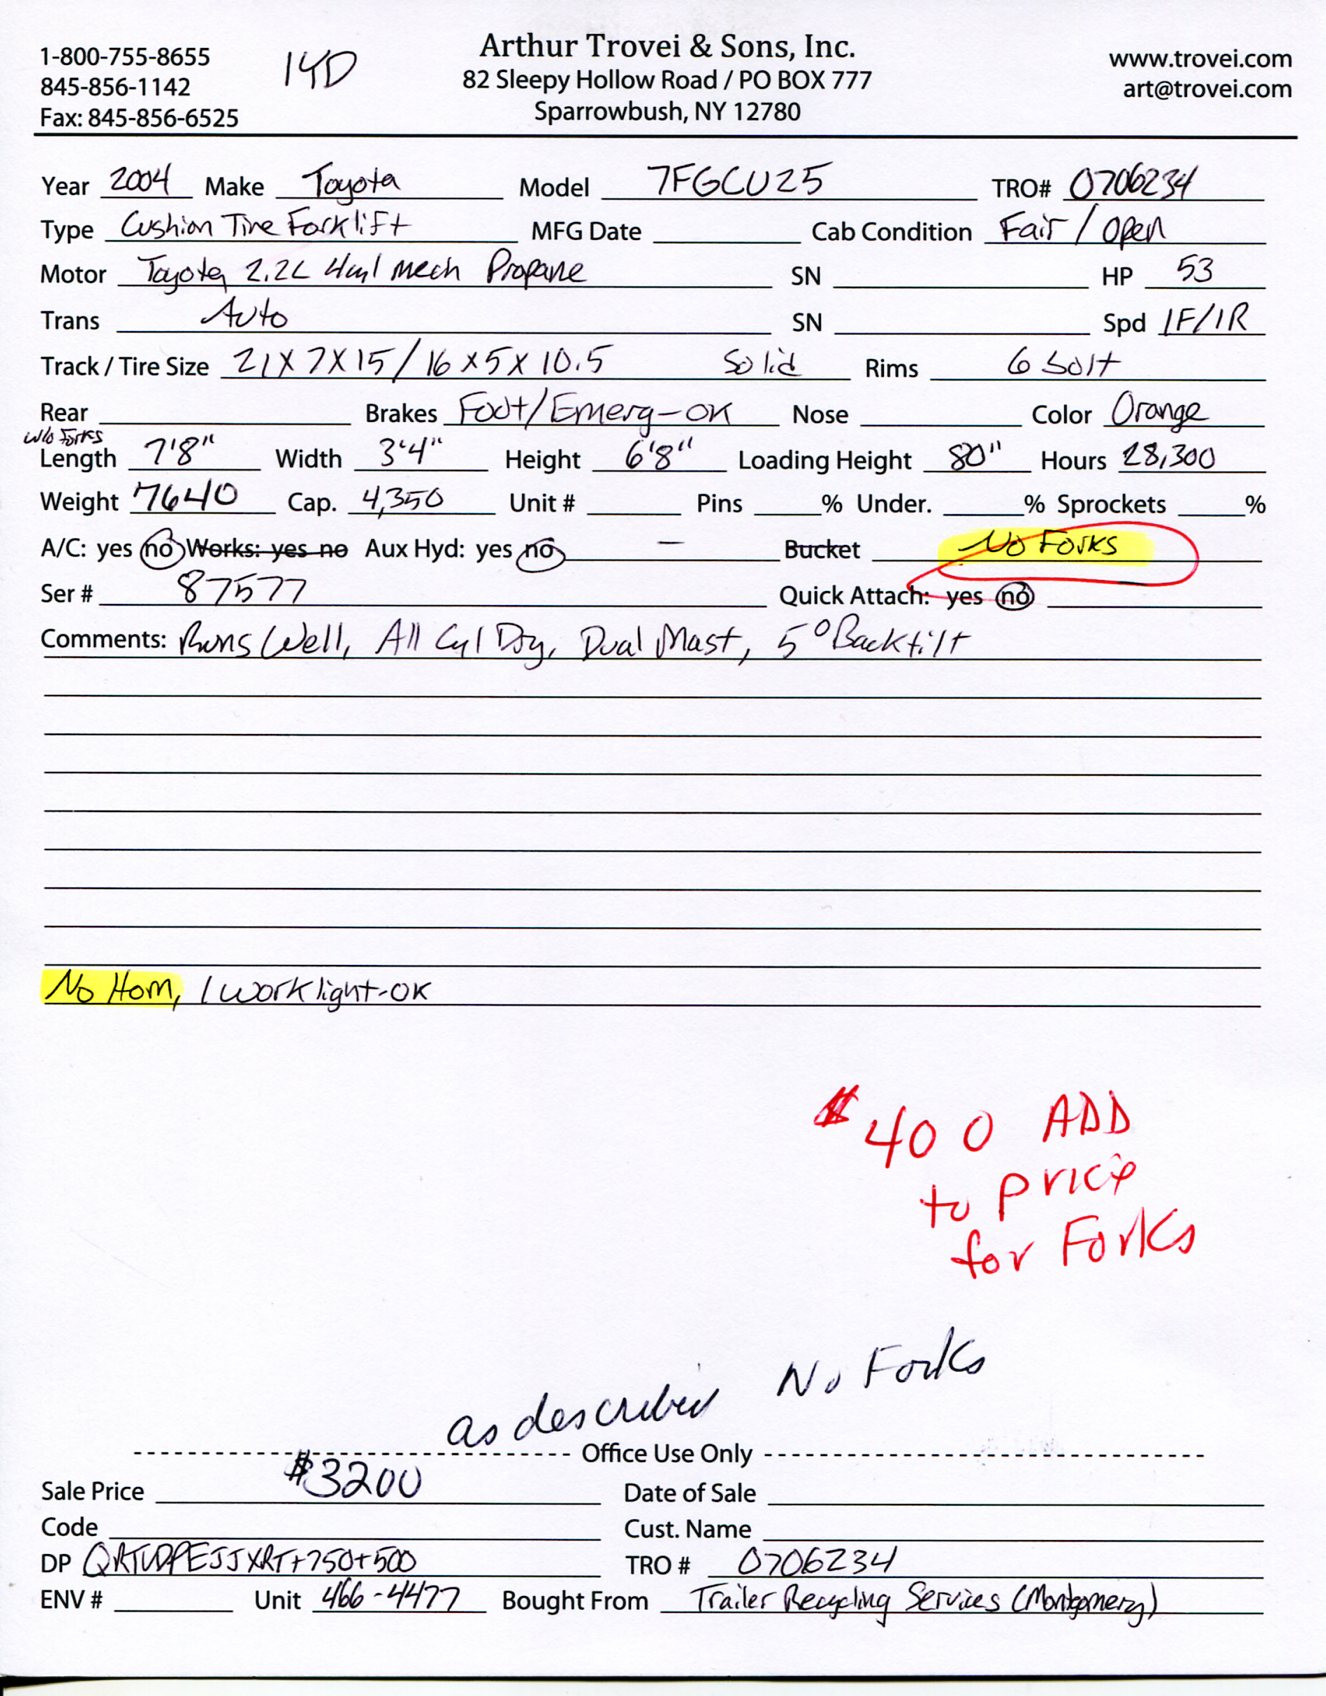 1-800-755-8655
845-856-1142
Fax: 845-856-6525
14D
Arthur Trovei & Sons, Inc.
82 Sleepy Hollow Road / PO BOX 777
Sparrowbush, NY 12780
www.trovei.com
art@trovei.com
Year 2004 Make Toyota Model 7FGCU25 TRO# 0706234
Type Cushion Tire Forklift MFG Date Cab Condition Fair / open
Motor Toyota 2.2L 4cyl mech Propane SN HP 53
Trans Auto SN Spd 1F/1R
Track / Tire Size 21x7x15/16x5x10.5 Solid Rims 6 bolt
Rear Brakes Foot/Emerg-OK Nose Color Orange
w/o Forks
Length 7'8" Width 3'4" Height 6'8" Loading Height 80" Hours 28,300
Weight 7640 Cap. 4,350 Unit # Pins % Under. % Sprockets %
A/C: yes no Works: yes no Aux Hyd: yes no — Bucket No Forks
Ser # 87577 Quick Attach: yes no
Comments: Runs Well, All Cyl Dry, Dual Mast, 5° Backtilt
No Horn, 1 worklight-OK
$400 ADD
to price
for Forks
as described No Forks
Office Use Only
Sale Price $3200 Date of Sale
Code Cust. Name
DP +750+500 TRO # 0706234
ENV # Unit 466-4477 Bought From Trailer Recycling Services (Montgomery)